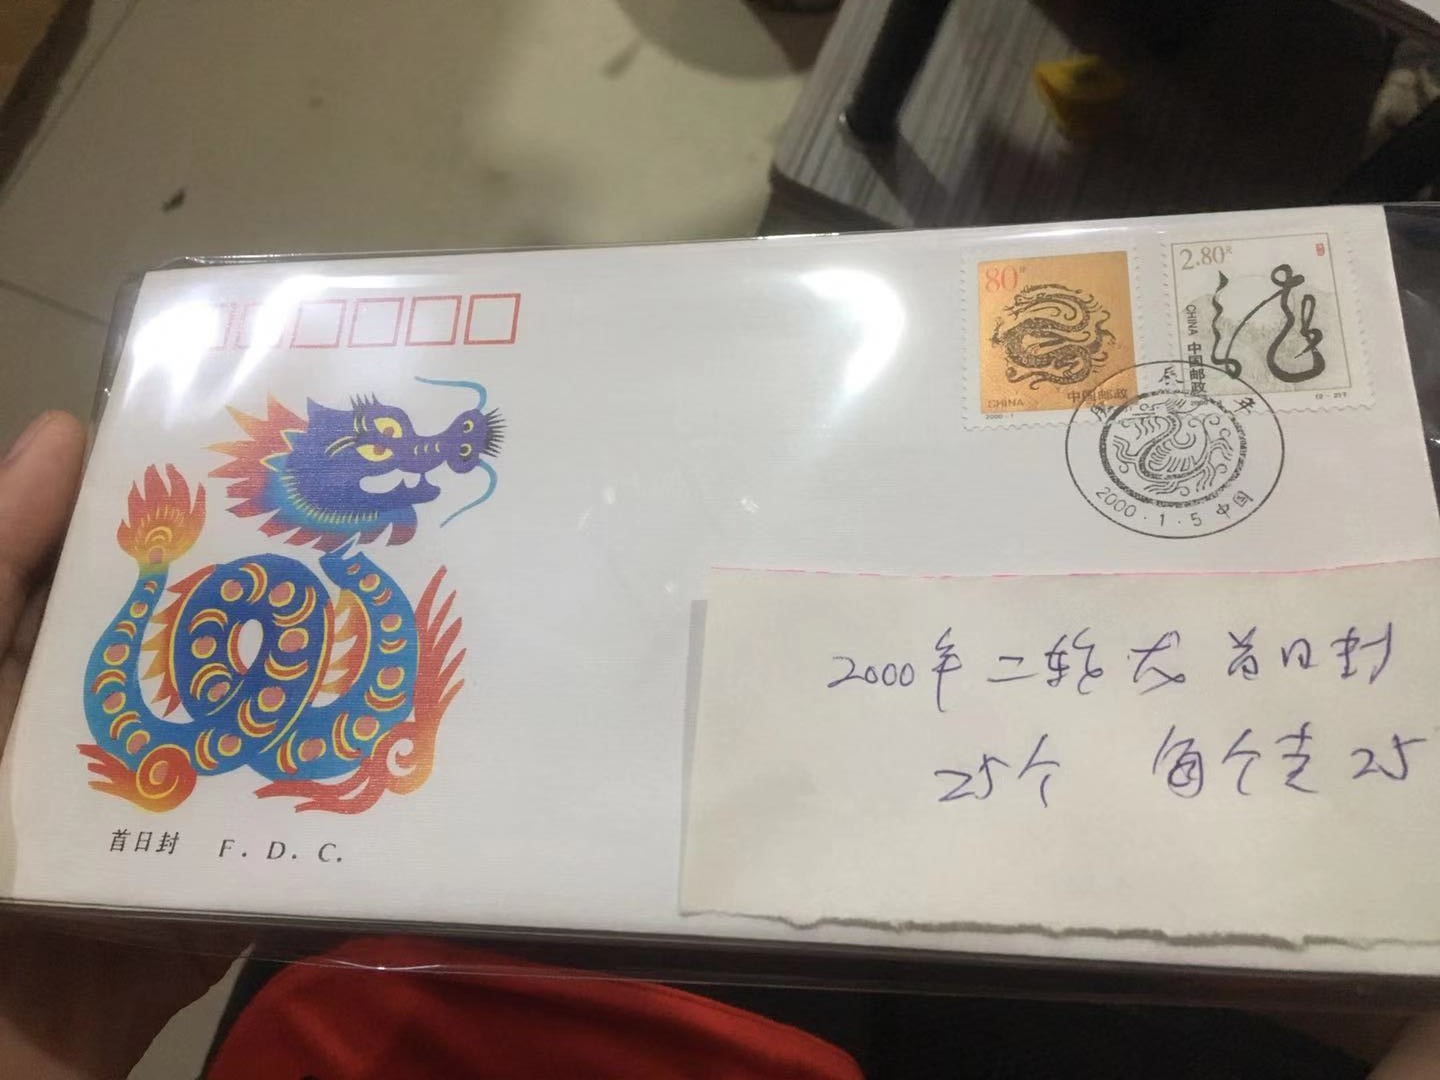 80分
CHINA
中国邮政
2000-1
2.80元
CHINA 中国邮政
(2-2)T
庚辰年
2000.1.5 中国
首日封 F.D.C.
2000年 二轮龙首日封
25个 每个走25